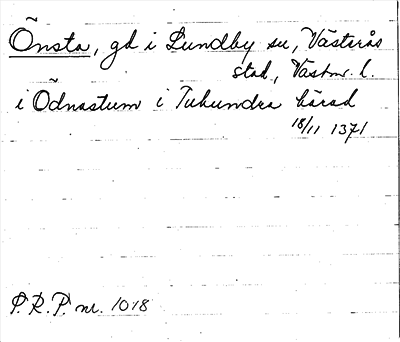 Önsta, gd i Lundby sn, Västerås
stad, Västm. l.
i Ödnastum i Tuhundra härad
18/11 1371
P.R.P. nr. 1018